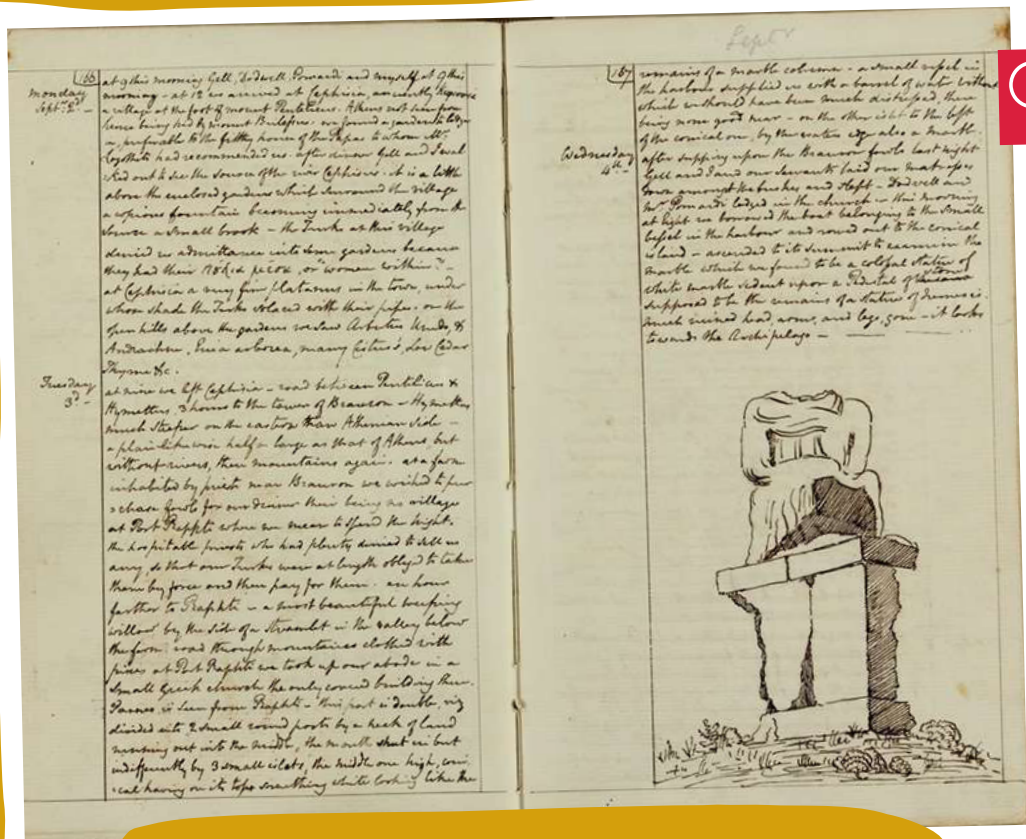 166
Monday
Septr. 2d
at 9 this morning Gell, Dodwell, Pomardi and myself at 9 this
morning - at 12 we arrived at Cephisia, anciently
a village at the foot of mount Pentelicus. Athens not seen from
hence being hid by mount - we found a garden to lodge
in, preferable to the filthy house of the Papas to whom Mr.
Logotheti had recommended us. after dinner Gell and I wal
ked out to see the source of the river Cephisus. it is a little
above the enclosed gardens which surround the village
a copious fountain becoming immediately from the
source a small brook - the Turks at this village
denied us admittance into some gardens because
they had their or "women within" -
at Cephisia a very fine platanus in the town, under
whose shade the Turks solaced with their pipes. on the
open hills above the gardens we saw Arbutus Unedo, &
Andrachne, Erica arborea, many Cistus's, Low Cedar
Thyme &c.
Tuesday
3d -
at nine we left Cephisia - road between Pentelicus &
Hymettus, 3 hours to the tower of Brauron - Hymettus
much steeper on the eastern than Athenian side -
a plain likewise half as large as that of Athens, but
without rivers, then mountains again. at a farm
inhabited by priests near Brauron we wished to pur
chase fowls for our dinner their being no village
at Port Raphti where we mean to spend the night.
the hospitable priests who had plenty denied to sell us
any, so that our Turks were at length obliged to take
them by force and then pay for them. an hour
farther to Raphti - a most beautiful weeping
willow by the side of a streamlet in the valley below
the farm: road through mountains clothed with
pines at Port Raphti we took up our abode in a
small Greek church the only covered building there.
is seen from Raphti - this port is double, viz
divided into 2 small round ports by a neck of land
running out into the middle, the mouth shut in but
indifferently by 3 small islets, the middle one high, coni
cal having on its top something white looking like the
Septr
167
remains of a marble column - a small vessel in
the harbour supplied us with a barrel of water without
which we should have been much distressed, there
being none good near - on the other islet to the left
of the conical one, by the water edge also a marble.
Wednesday
4th -
after supping upon the Brauron fowls last night
Gell and I and our servants laid our matrasses
down amongst the bushes and slept - Dodwell and
Mr Pomardi lodged in the church - this morning
at light we borrowed the boat belonging to the small
vessel in the harbour and rowed out to the conical
island - ascended to its summit to examine the
marble which we found to be a colossal statue of
white marble sedent upon a Pedestal of stone
supposed to be the remains of a statue of Nemesis.
much ruined head, arms, and legs, gone - it looks
towards the Archipelago -